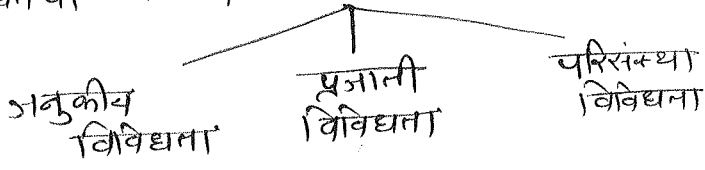 जनुकीय
विविधता
प्रजाती
विविधता
परिसंस्था
विविधता